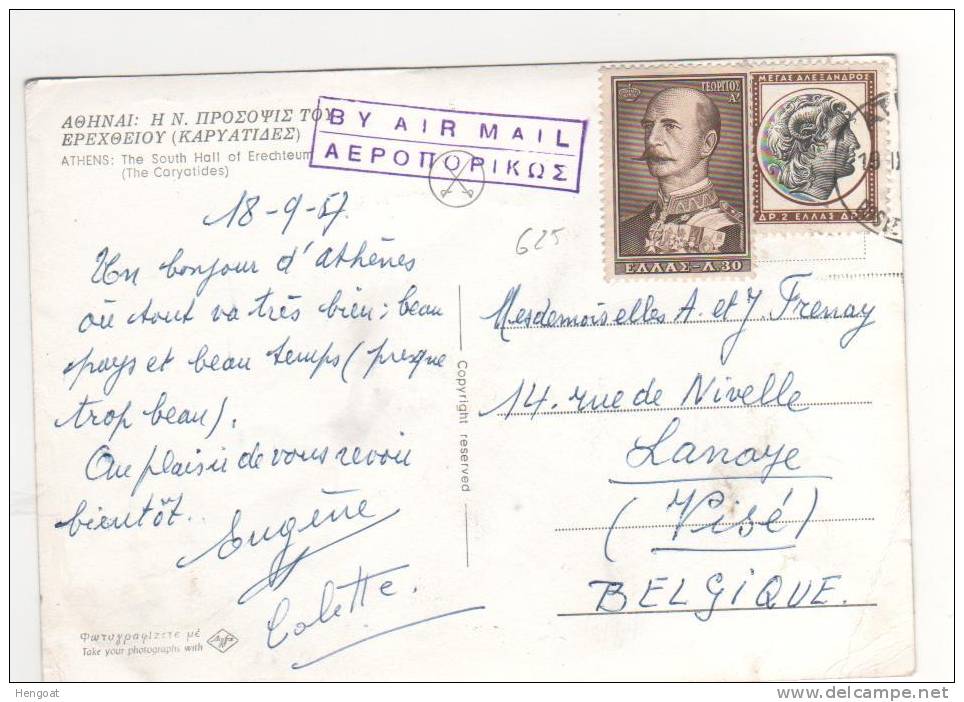 ΑΘΗΝΑΙ: Η Ν. ΠΡΟΣΟΨΙΣ ΤΟΥ
ΕΡΕΧΘΕΙΟΥ (ΚΑΡΥΑΤΙΔΕΣ)
ATHENS: The South Hall of Erechteum
(The Caryatides)
BY AIR MAIL
ΑΕΡΟΠΟΡΙΚΩΣ
ΓΕΩΡΓΙΟΣ
Α'
ΕΛΛΑΣ-Λ.30
ΜΕΓΑΣ ΑΛΕΞΑΝΔΡΟΣ
ΔΡ.2 ΕΛΛΑΣ ΔΡ.2
18-9-57
Un bonjour d'athènes
où tout va très bien; beau
pays et beau temps (presque
trop beau).
Au plaisir de vous revoir
bientôt..
Eugène
Colette.
625
Copyright reserved
Mesdemoiselles A. et J. Frenay
14. rue de Nivelle
Lanaye
(Visé)
BELGIQUE.
Φωτογραφίζετε μέ
Take your photographs with
Agfa
Hengoat
www.delcampe.net